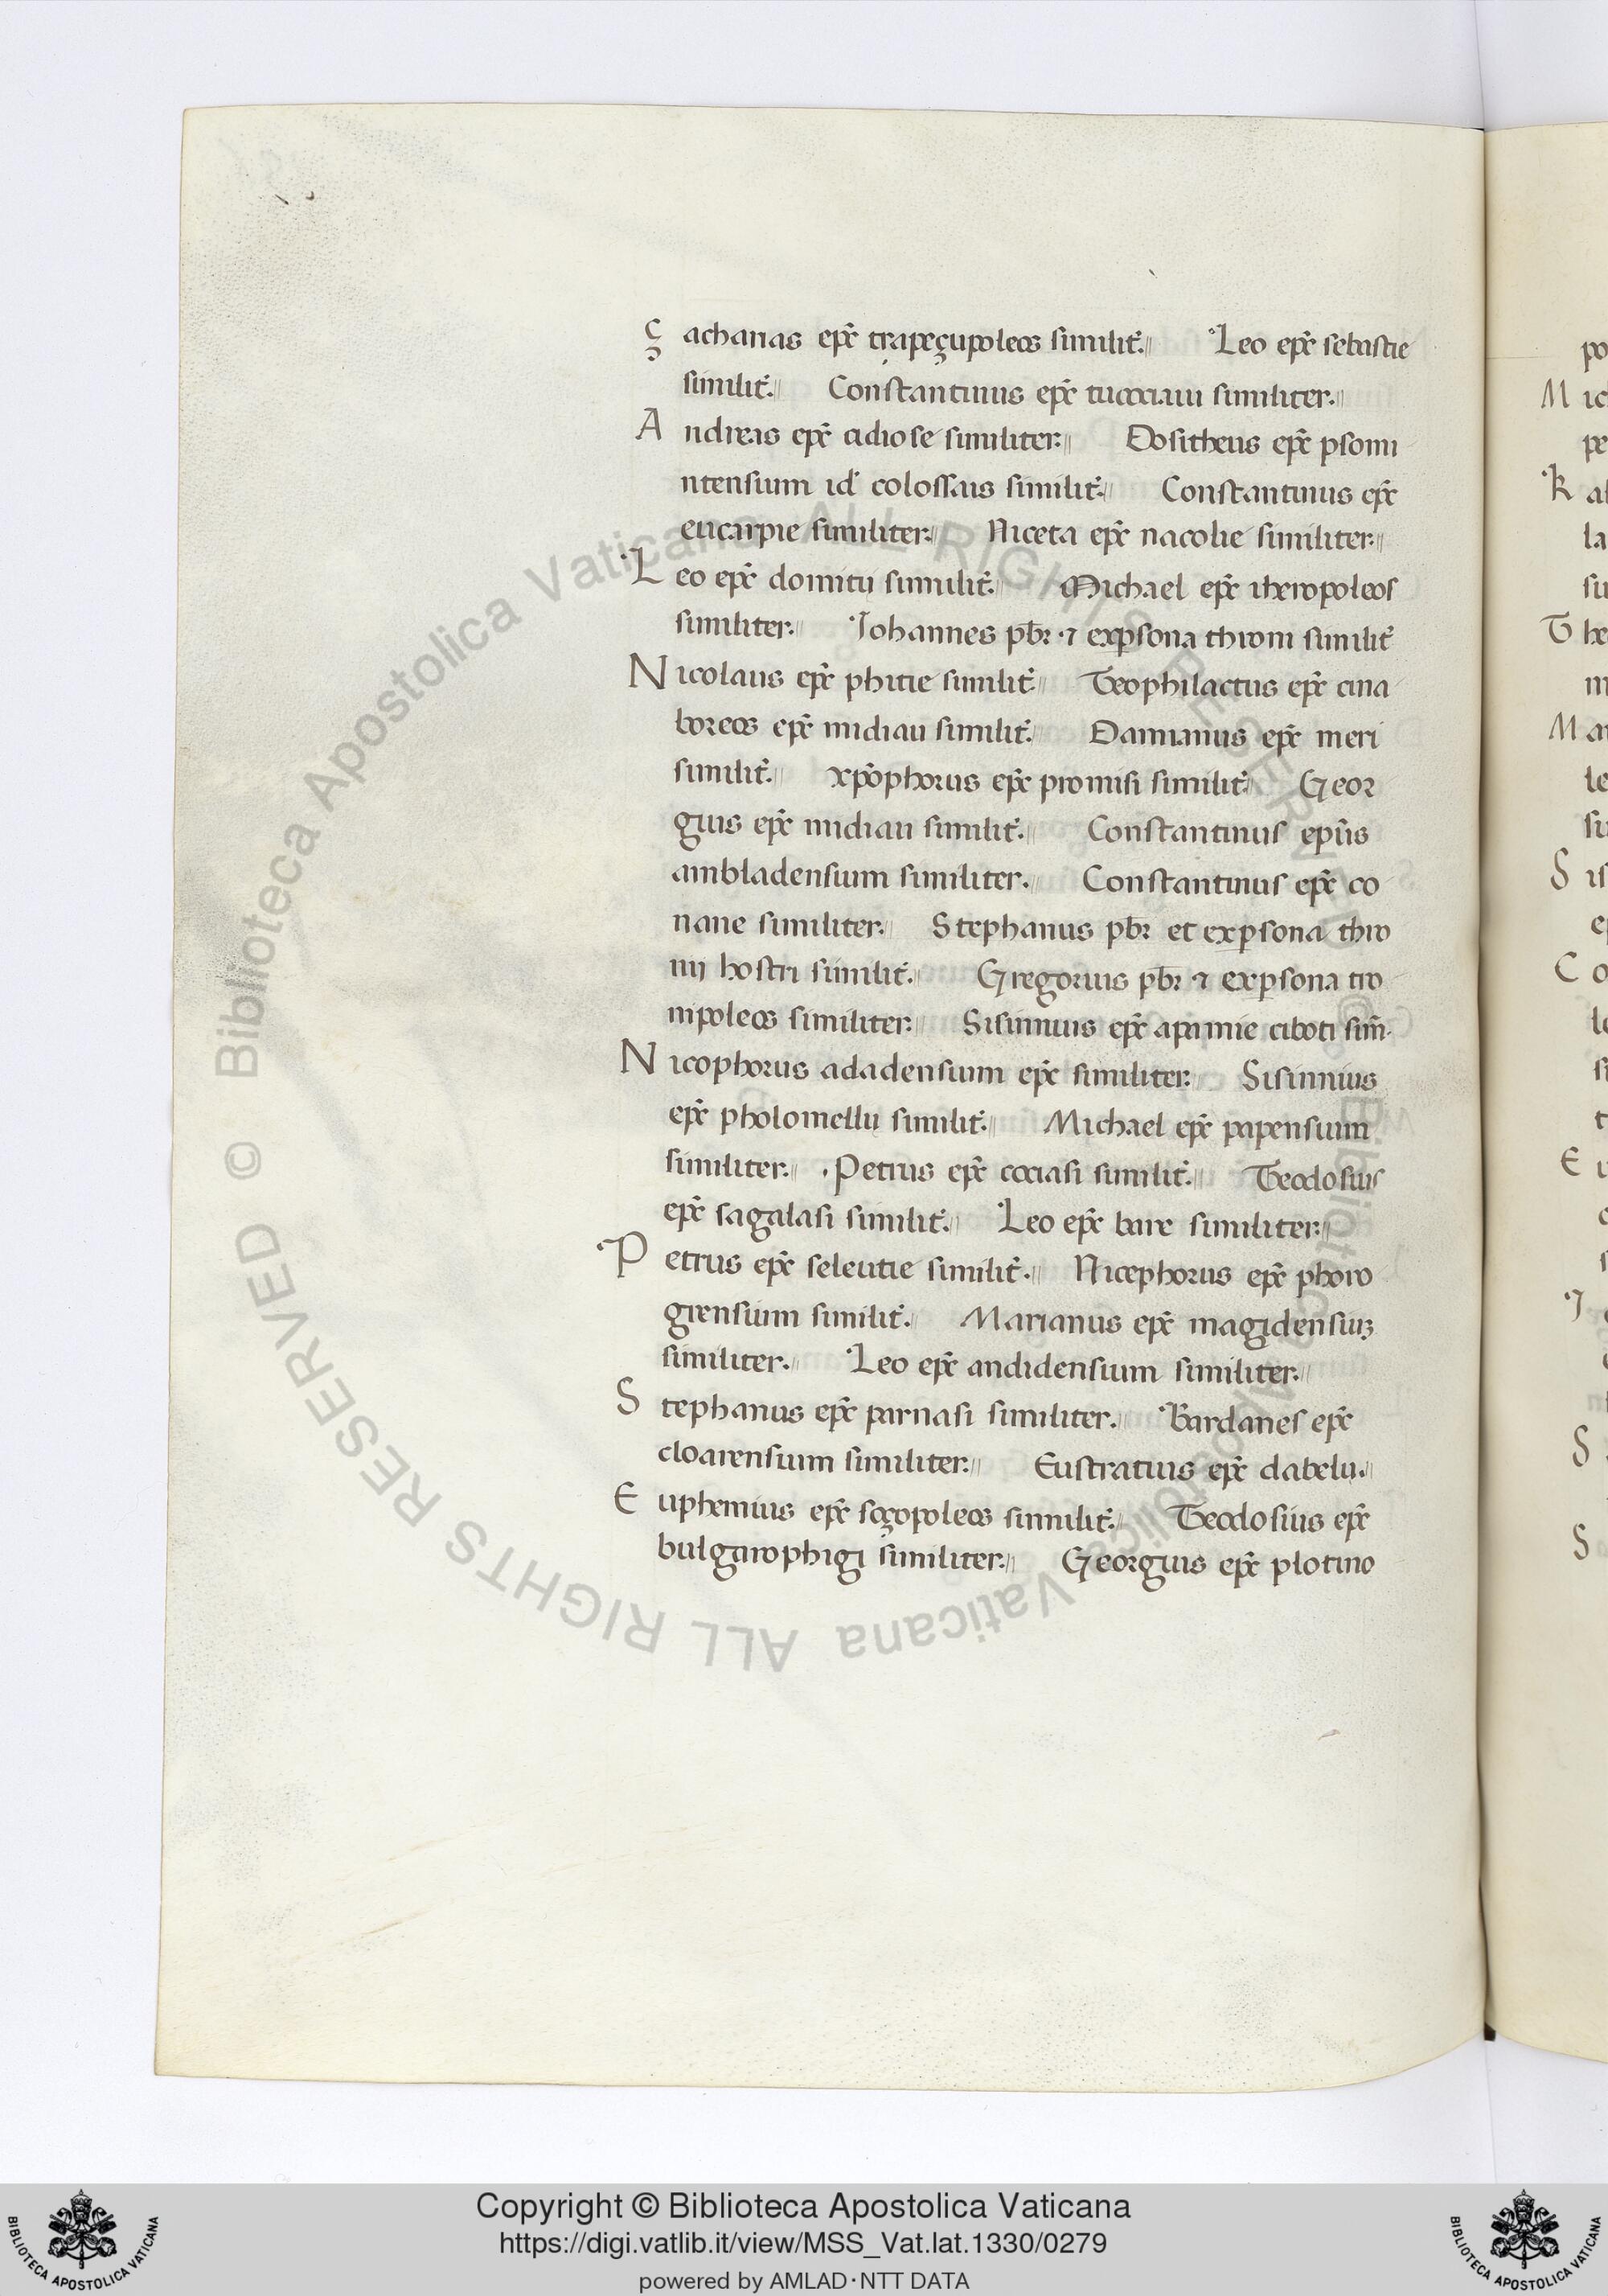 Çachanas ep̃c trapeçupoleos similit̃. Leo ep̃c sebastie
similit̃. Constantinus ep̃c tuccciaui similiter.
Andreas ep̃c adiose similiter. Dositheus ep̃c psomi
ntensium id colossais similit̃. Constantinus ep̃c
eucarpie similiter. Niceta ep̃c nacolie similiter.
Leo ep̃c domitii similit̃. Michael ep̃c iheropoleos
similiter. Iohannes pbr̃ ⁊ exp̱sona throni similit̃
Nicolaus ep̃c phitie similit̃. Teophilactus ep̃c cina
boreos ep̃c midiau similit̃. Damianus ep̃c meri
similit̃. xp̃ophorus ep̃c promisi similit̃. Geor
gius ep̃c midiau similit̃. Constantinus ep̃us
ambladensium similiter. Constantinus ep̃c co
nane similiter. Stephanus pbr̃ et exp̱sona thro
nij hostri similit̃. Gregorius pbr̃ ⁊ exp̱sona tro
nipoleos similiter. Sisinnius ep̃c apamie ciboti sim̃.
Nicophorus adadensium ep̃c similiter. Sisinnius
ep̃c pholomellij similit̃. Michael ep̃c papensium
similiter. Petrus ep̃c cociasi similit̃. Teodosius
ep̃c sagalasi similit̃. Leo ep̃c bare similiter.
Petrus ep̃c seleutie similit̃. Nicephorus ep̃c phoro
girensium similit̃. Marianus ep̃c magidensiuʒ
similiter. Leo ep̃c andidensium similiter.
Stephanus ep̃c parnasi similiter. Bardanes ep̃c
cloarensium similiter. Eustratius ep̃c dabelij.
Euphemius ep̃c soçopoleos similit̃. Teodosius ep̃c
bulgarophigi similiter. Georgius ep̃c plotino
© Biblioteca Apostolica Vaticana ALL RIGHTS RESERVED © Biblioteca Apostolica Vaticana ALL RIGHTS RESERVED
Copyright © Biblioteca Apostolica Vaticana
https://digi.vatlib.it/view/MSS_Vat.lat.1330/0279
powered by AMLAD·NTT DATA
BIBLIOTECA APOSTOLICA VATICANA
BIBLIOTECA APOSTOLICA VATICANA